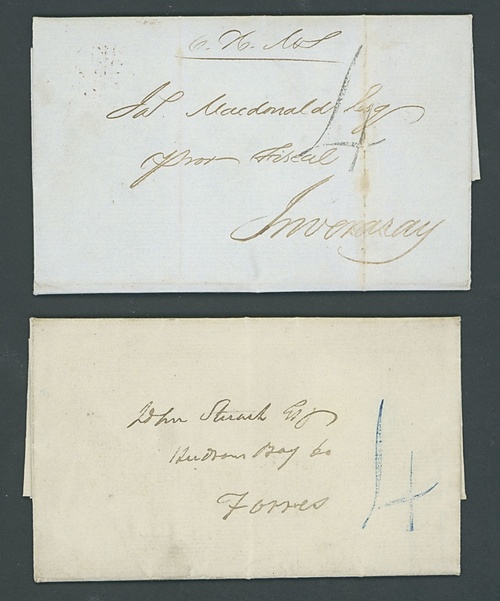 O. H. M. S
Jas. Macdonald Esq
4
Pror Fiscal
Inveraray
John Stuart Esq
Hudsons Bay Co
4
Forres